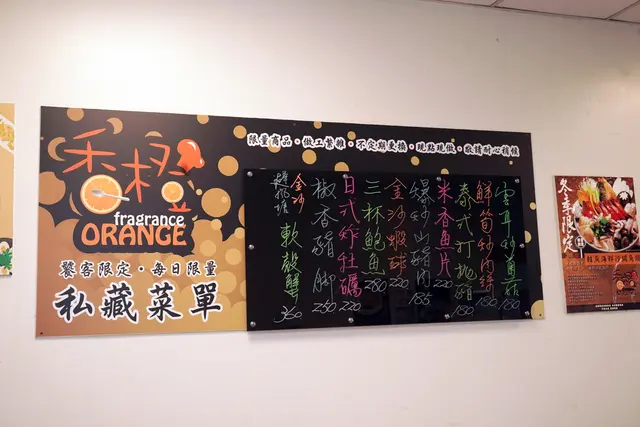 香橙
fragrance
ORANGE
饕客限定・每日限量
私藏菜單
限量商品・做工繁雜・不定期更換・現點現做・敬請耐心稍候
鮮筍炒肉絲 180
泰式打拋豬 180
米香魚片 220
爆炒山豬肉 185
金沙蝦球 220
三杯鮑魚 280
日式炸牡蠣 220
椒香豬腳 250
金沙
避風塘
軟殼蟹 360
冬季限定